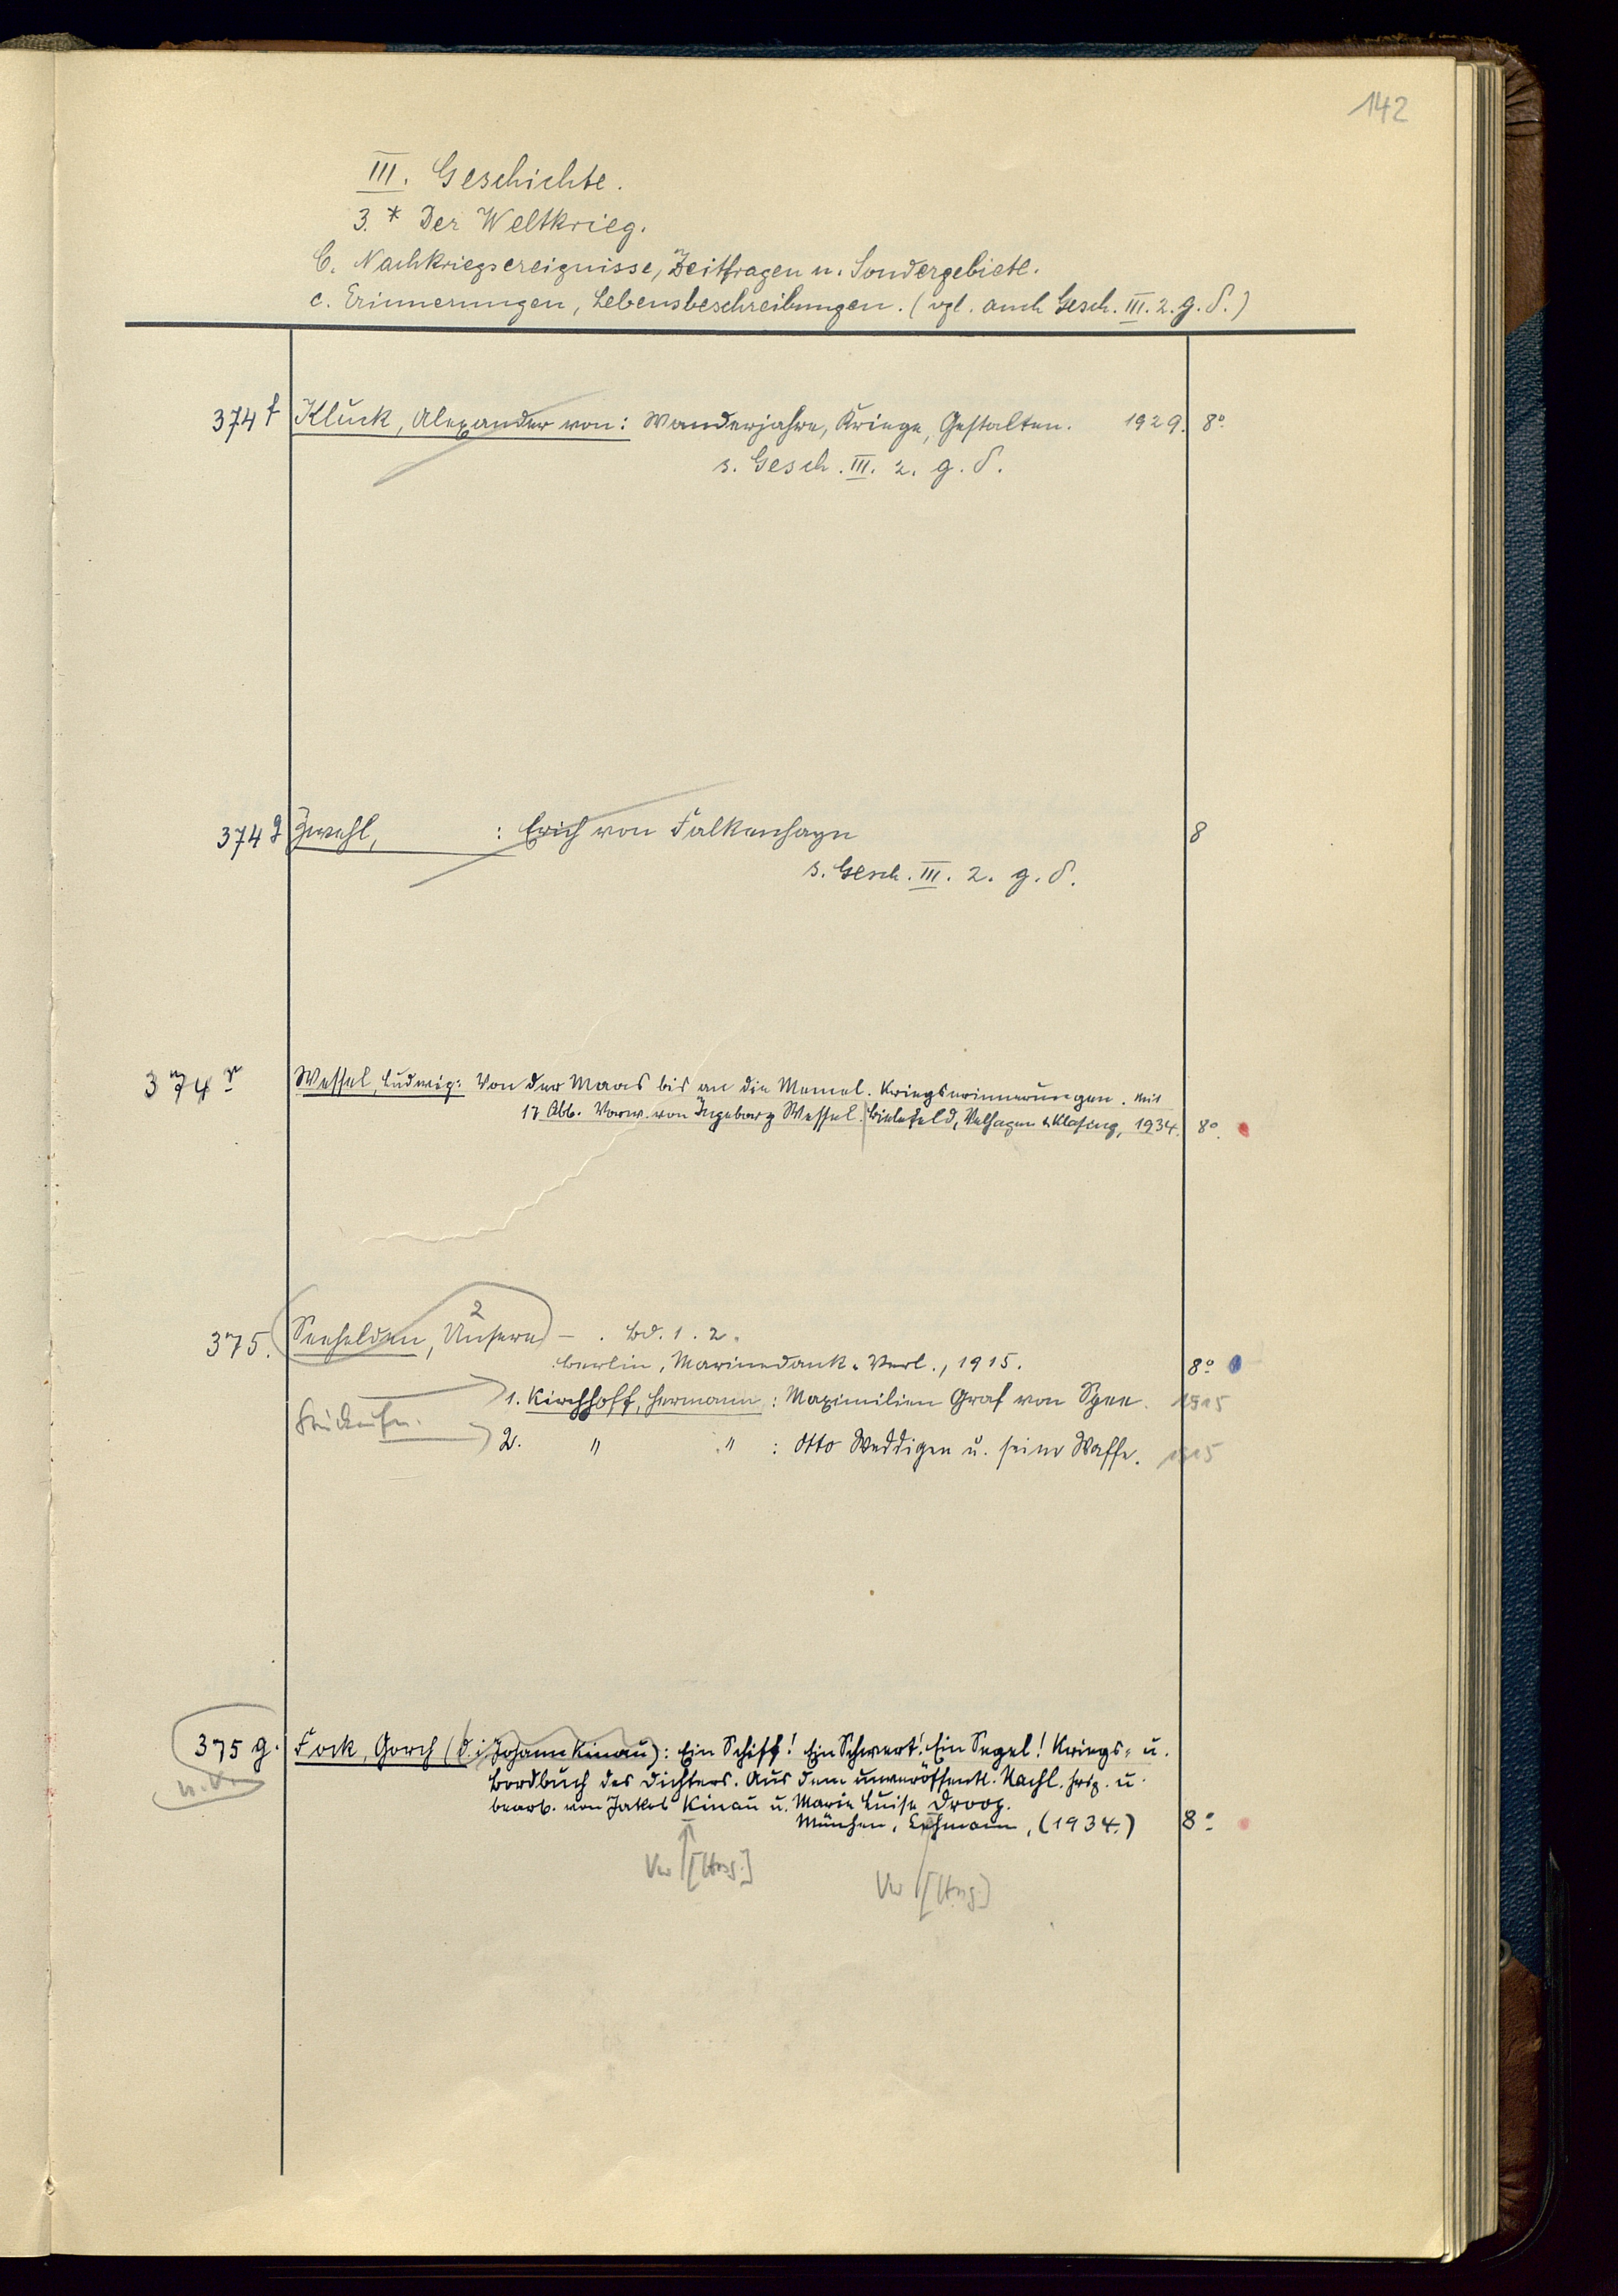 142
III. Geschichte.
3.* Der Weltkrieg.
C. Nachkriegsereignisse, Zeitfragen u. Sondergebiete.
c. Erinnerungen, Lebensbeschreibungen. (vgl. auch Gesch. III. 2. g. δ.)
374 f Kluck, Alexander von: Wanderjahre, Kriege, Gestalten. 1929. 8°
s. Gesch. III. 2. g. δ.
374 g Zwehl, : Erich von Falkenhayn 8
s. Gesch. III. 2. g. δ.
374 r Wessel, Ludwig: Von der Maas bis an die Memel. Kriegserinnerungen. Mit
17 Abb. Vorw. von Ingeborg Wessel. Bielefeld, Velhagen & Klasing, 1934. 8°.
2
375. Seehelden, Unsere – . Bd. 1. 2.
Berlin, Marinedank-Verl., 1915. 8°
1. Kirchhoff, Hermann: Maximilian Graf von Spee. 1915
2. " " : Otto Weddigen u. seine Waffe. 1915
375 g. Fock, Gorch (d. i. Johann Kinau): Ein Schiff! Ein Schwert! Ein Segel! Kriegs- u.
Bordbuch des Dichters. Aus dem unveröffentl. Nachl. hrsg. u.
bearb. von Jakob Kinau u. Marie Luise Droop.
München, Lehmann, (1934.) 8°
Vw [Hrsg.]
Vw [Hrsg.]